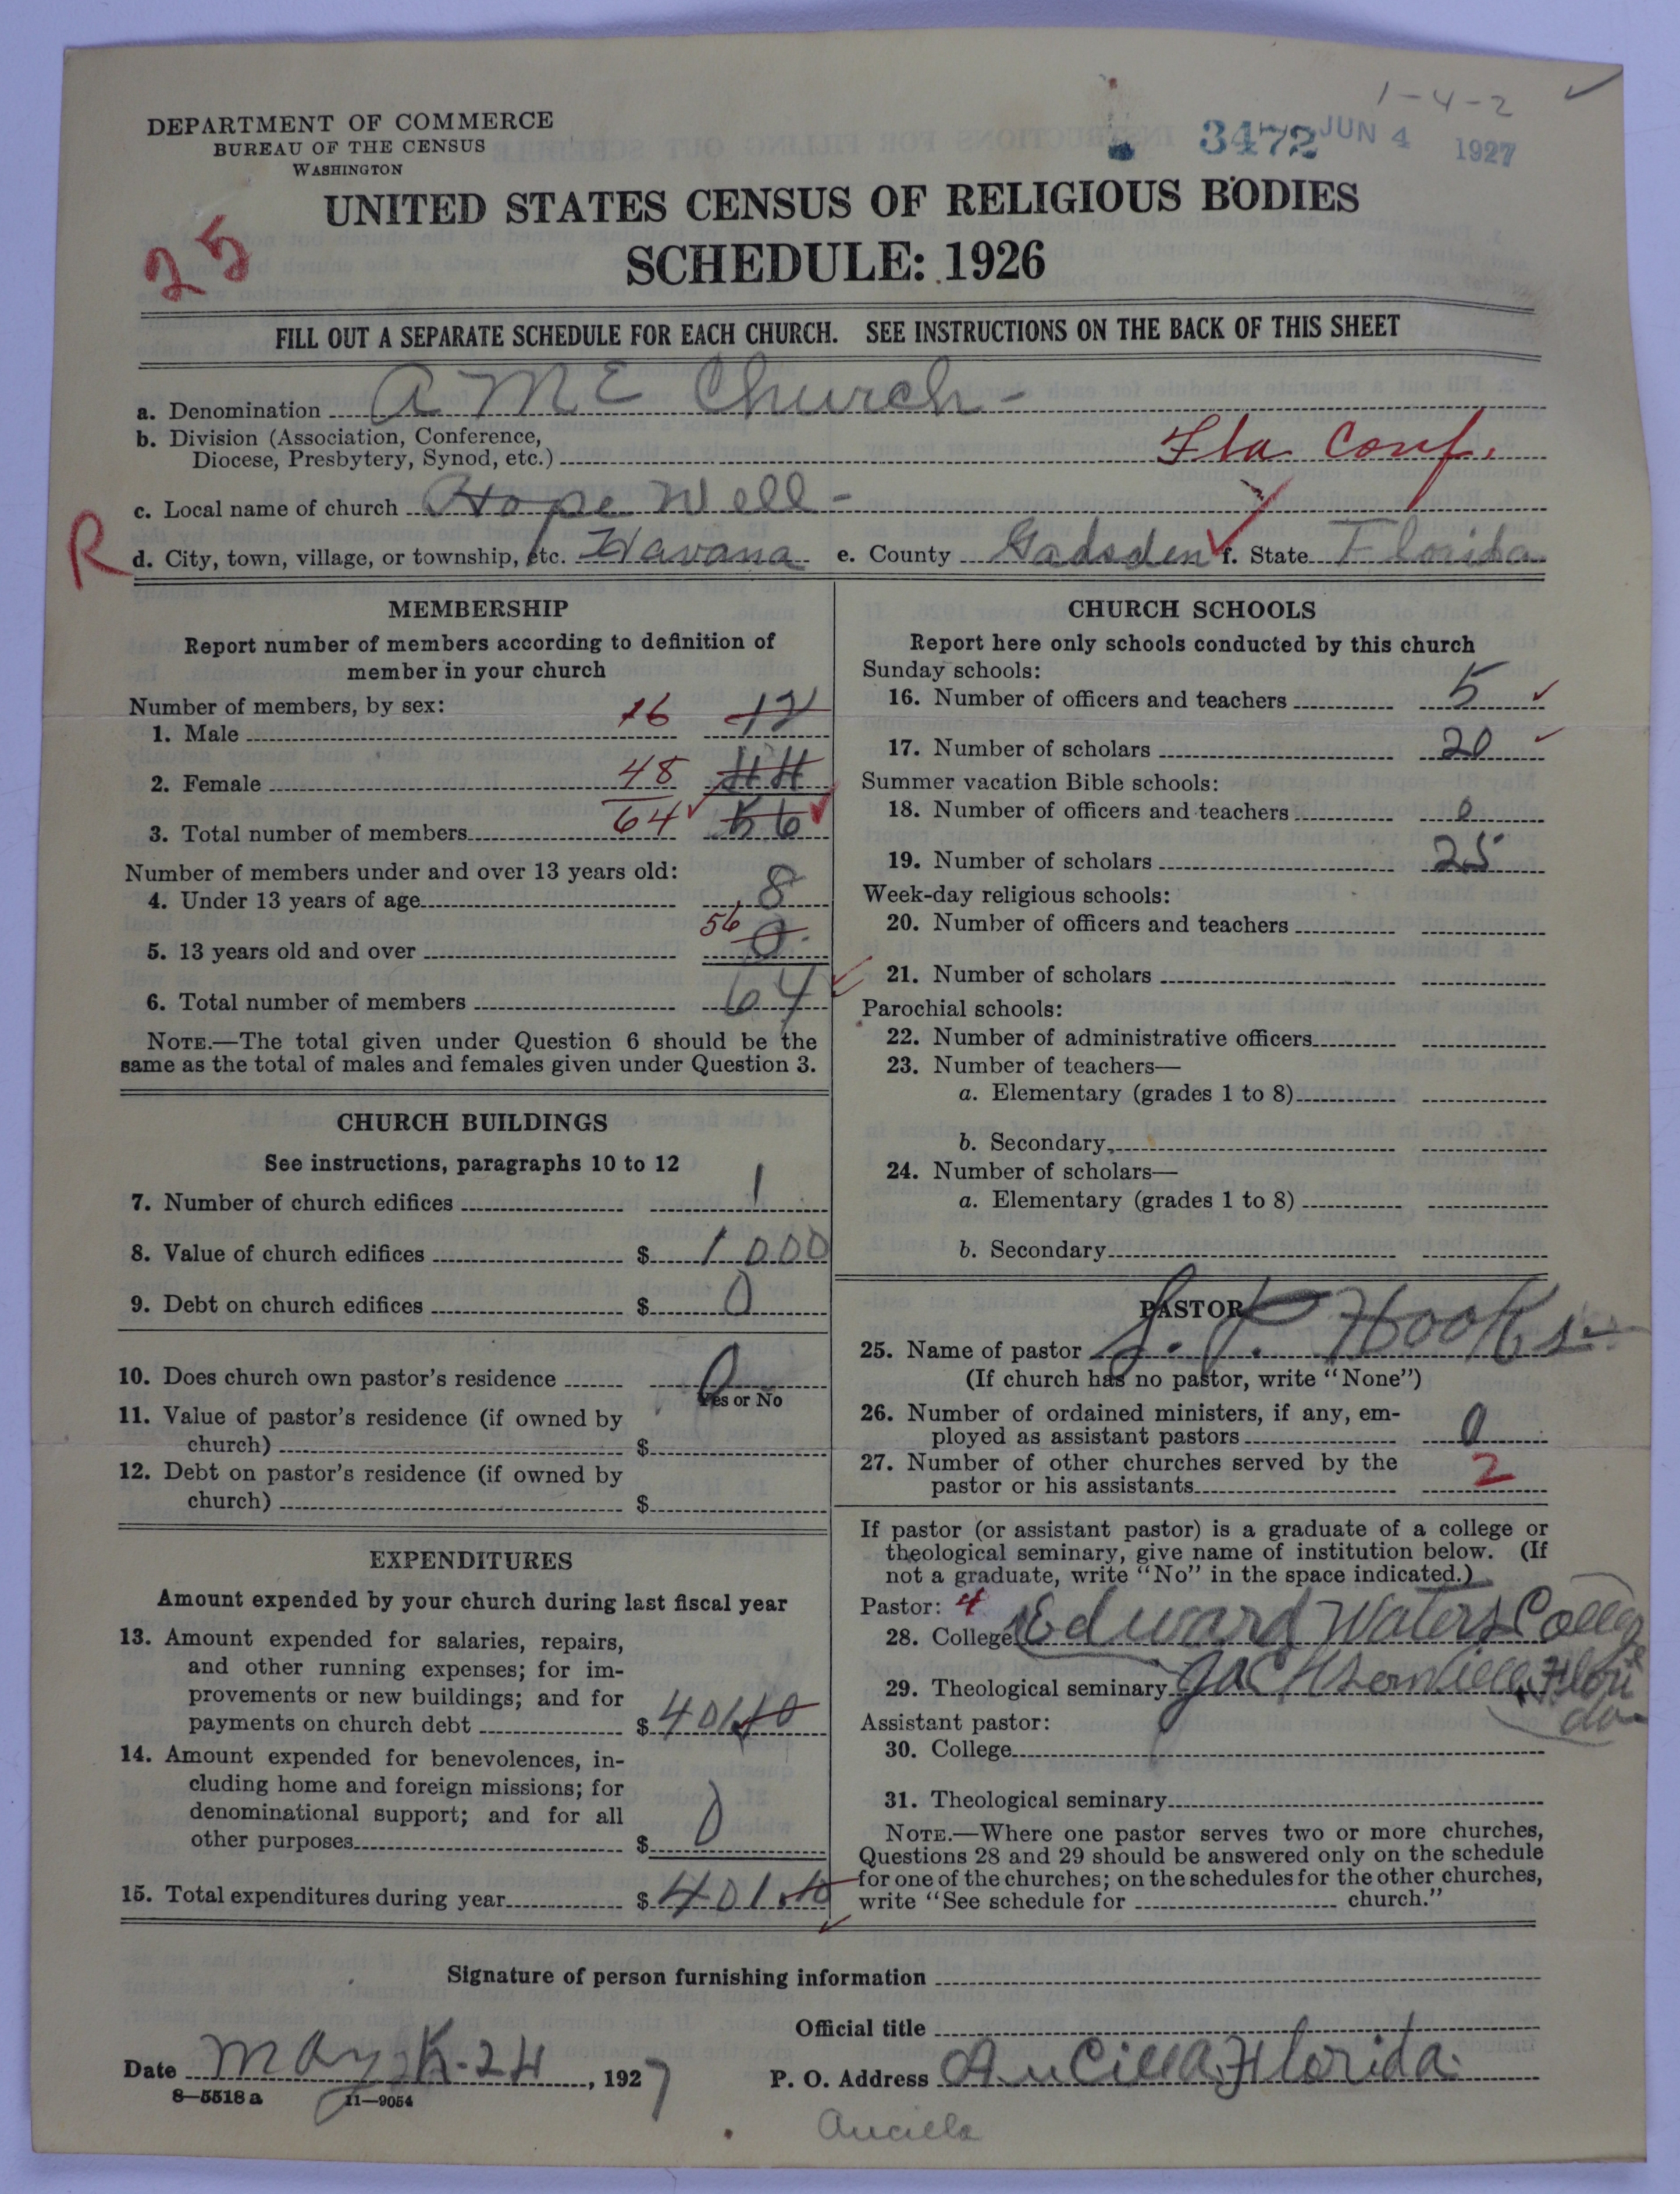 1-4-2
DEPARTMENT OF COMMERCE
BUREAU OF THE CENSUS
WASHINGTON
3472 JUN 4 1927
UNITED STATES CENSUS OF RELIGIOUS BODIES
SCHEDULE: 1926
25
FILL OUT A SEPARATE SCHEDULE FOR EACH CHURCH. SEE INSTRUCTIONS ON THE BACK OF THIS SHEET
a. Denomination A M E Church -
b. Division (Association, Conference,
Diocese, Presbytery, Synod, etc.) Fla Conf.
c. Local name of church Hope Well -
R
d. City, town, village, or township, etc. Havana e. County Gadsden f. State Florida
MEMBERSHIP
Report number of members according to definition of
member in your church
Number of members, by sex:
1. Male 16 12
2. Female 48 44
3. Total number of members 64 56
Number of members under and over 13 years old:
4. Under 13 years of age 8
5. 13 years old and over 56 0
6. Total number of members 64
NOTE.—The total given under Question 6 should be the
same as the total of males and females given under Question 3.
CHURCH BUILDINGS
See instructions, paragraphs 10 to 12
7. Number of church edifices 1
8. Value of church edifices $ 1000
9. Debt on church edifices $ 0
10. Does church own pastor's residence 0
Yes or No
11. Value of pastor's residence (if owned by
church) $
12. Debt on pastor's residence (if owned by
church) $
EXPENDITURES
Amount expended by your church during last fiscal year
13. Amount expended for salaries, repairs,
and other running expenses; for im-
provements or new buildings; and for
payments on church debt $ 401.10
14. Amount expended for benevolences, in-
cluding home and foreign missions; for
denominational support; and for all
other purposes $ 0
15. Total expenditures during year $ 401.10
CHURCH SCHOOLS
Report here only schools conducted by this church
Sunday schools:
16. Number of officers and teachers 5
17. Number of scholars 20
Summer vacation Bible schools:
18. Number of officers and teachers 0
19. Number of scholars 25
Week-day religious schools:
20. Number of officers and teachers
21. Number of scholars
Parochial schools:
22. Number of administrative officers
23. Number of teachers—
a. Elementary (grades 1 to 8)
b. Secondary
24. Number of scholars—
a. Elementary (grades 1 to 8)
b. Secondary
PASTOR
25. Name of pastor S. P. Hooks
(If church has no pastor, write "None")
26. Number of ordained ministers, if any, em-
ployed as assistant pastors 0
27. Number of other churches served by the
pastor or his assistants 2
If pastor (or assistant pastor) is a graduate of a college or
theological seminary, give name of institution below. (If
not a graduate, write "No" in the space indicated.)
Pastor: 4
28. College Edward Waters College
29. Theological seminary Jacksonville, Flori
da
Assistant pastor:
30. College
31. Theological seminary
NOTE.—Where one pastor serves two or more churches,
Questions 28 and 29 should be answered only on the schedule
for one of the churches; on the schedules for the other churches,
write "See schedule for church."
Signature of person furnishing information
Official title
Date May 24, 1927 P. O. Address Aucilla, Florida
8—5518 a 11—9054
Aucilla